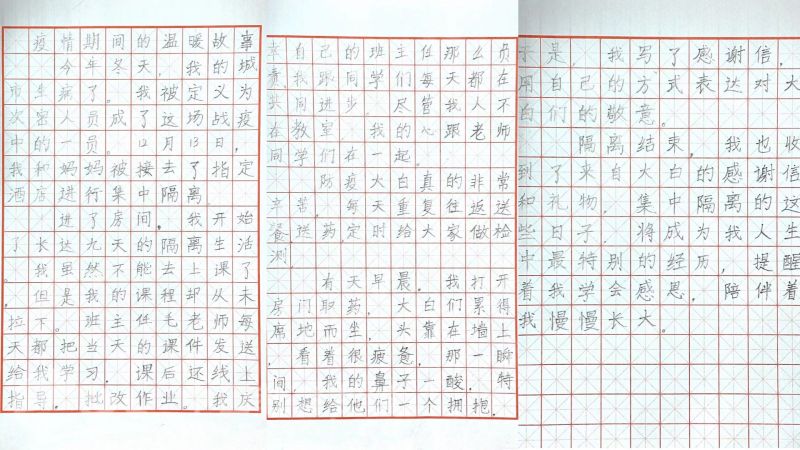 疫情期间的温暖故事
今年冬天，我的城
市生病了。我被定义为
次密人员成了这场战疫
中的一员。12月13日，
我和妈妈被接去了指定
酒店进行集中隔离。
进了房间，我开始
了长达九天的隔离生活
。我虽然不能去上课了
，但是我的课程却从未
拉下。班主任毛老师每
天都把当天的课件发送
给我学习，课后还线上
指导，批改作业。我庆
幸自己的班主任那么负
责，我跟同学们每天都在
共同进步，尽管我人不
在教室，我的心跟老师
同学们在一起。
防疫大白真的非常
辛苦，每天重复往返送
餐，送药，定时给大家做检
测，
有天早晨，我打开
房门取药，大白们累得
席地而坐，头靠在墙上
，看着很疲惫，那一瞬
间，我的鼻子一酸，特
别想给他们一个拥抱。
于是，我写了感谢信，
用自己的方式表达对大
白们的敬意。
隔离结束，我也收
到了来自大白的感谢信
和礼物，集中隔离的这
些日子，将成为我人生
中最特别的经历，提醒
着我学会感恩，陪伴着
我慢慢长大。